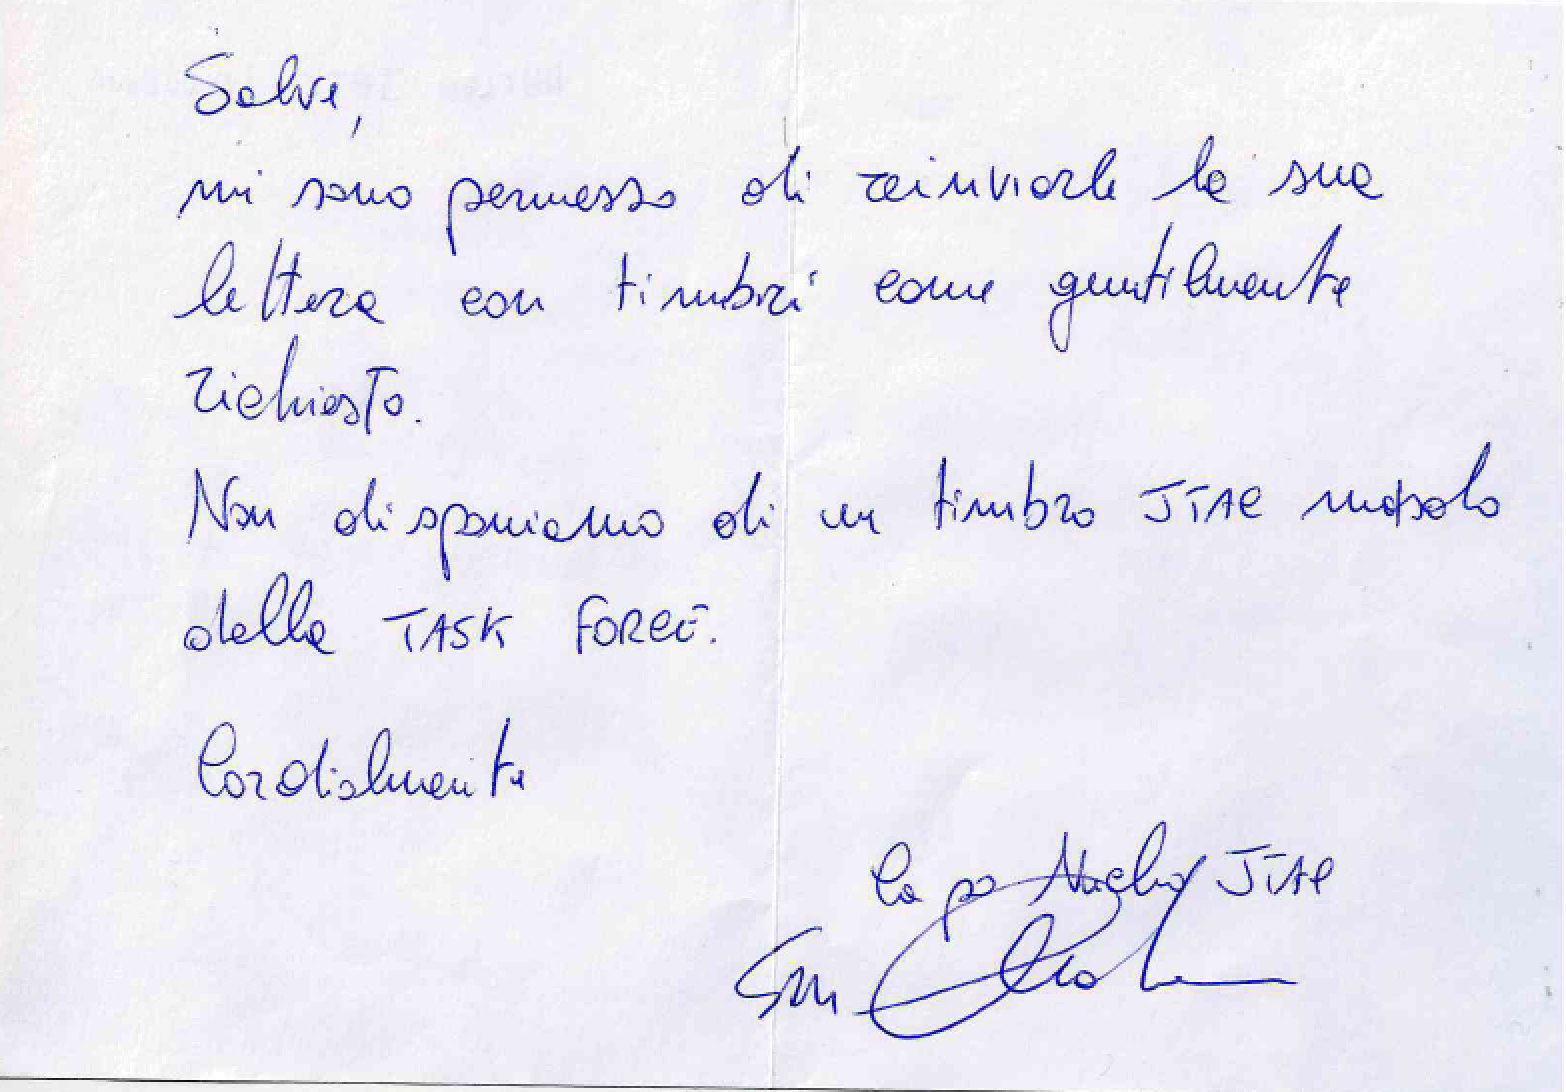 Salve,
mi sono permesso di reinviarle la sua
lettera con timbri come gentilmente
richiesto.
Non disponiamo di un timbro JTAC ma solo
della TASK FORCE.
Cordialmente
Capo Nucleo JTAC